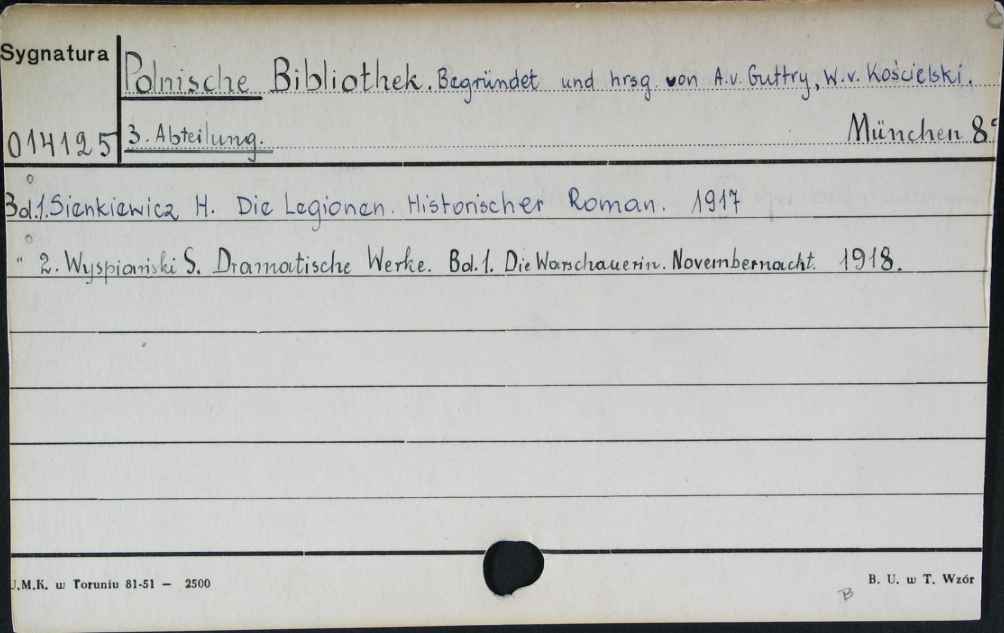 Sygnatura
Polnische Bibliothek. Begründet und hrsg. von A.v. Guttry, W.v. Kościelski.
014125
3. Abteilung. München 8°
Bd.1. Sienkiewicz H. Die Legionen. Historischer Roman. 1917
" 2. Wyspiański S. Dramatische Werke. Bd.1. Die Warschauerin. Novembernacht. 1918.
U.M.K. w Toruniu 81-51 — 2500
B. U. w T. Wzór
B